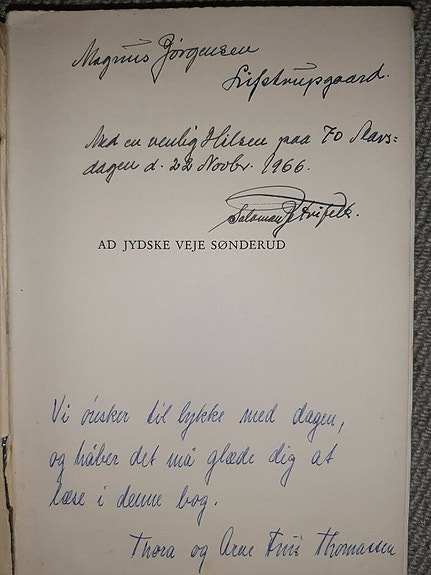 Magnus Jørgensen
Sifstrupgaard.
Med en venlig Hilsen paa 70 Aars=
dagen d. 22 Novbr. 1966.
Salomon J Frifelt.
AD JYDSKE VEJE SØNDERUD
Vi ønsker til lykke med dagen,
og håber det må glæde dig at
læse i denne bog.
Thora og Arne Friis Thomassen